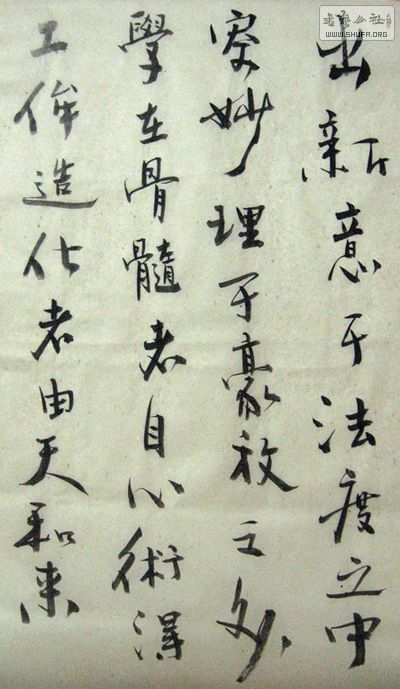 書法公社
WWW.SHUFA.ORG
出新意于法度之中
寄妙理于豪放之外
學在骨髓者自心術得
工侔造化者由天和来